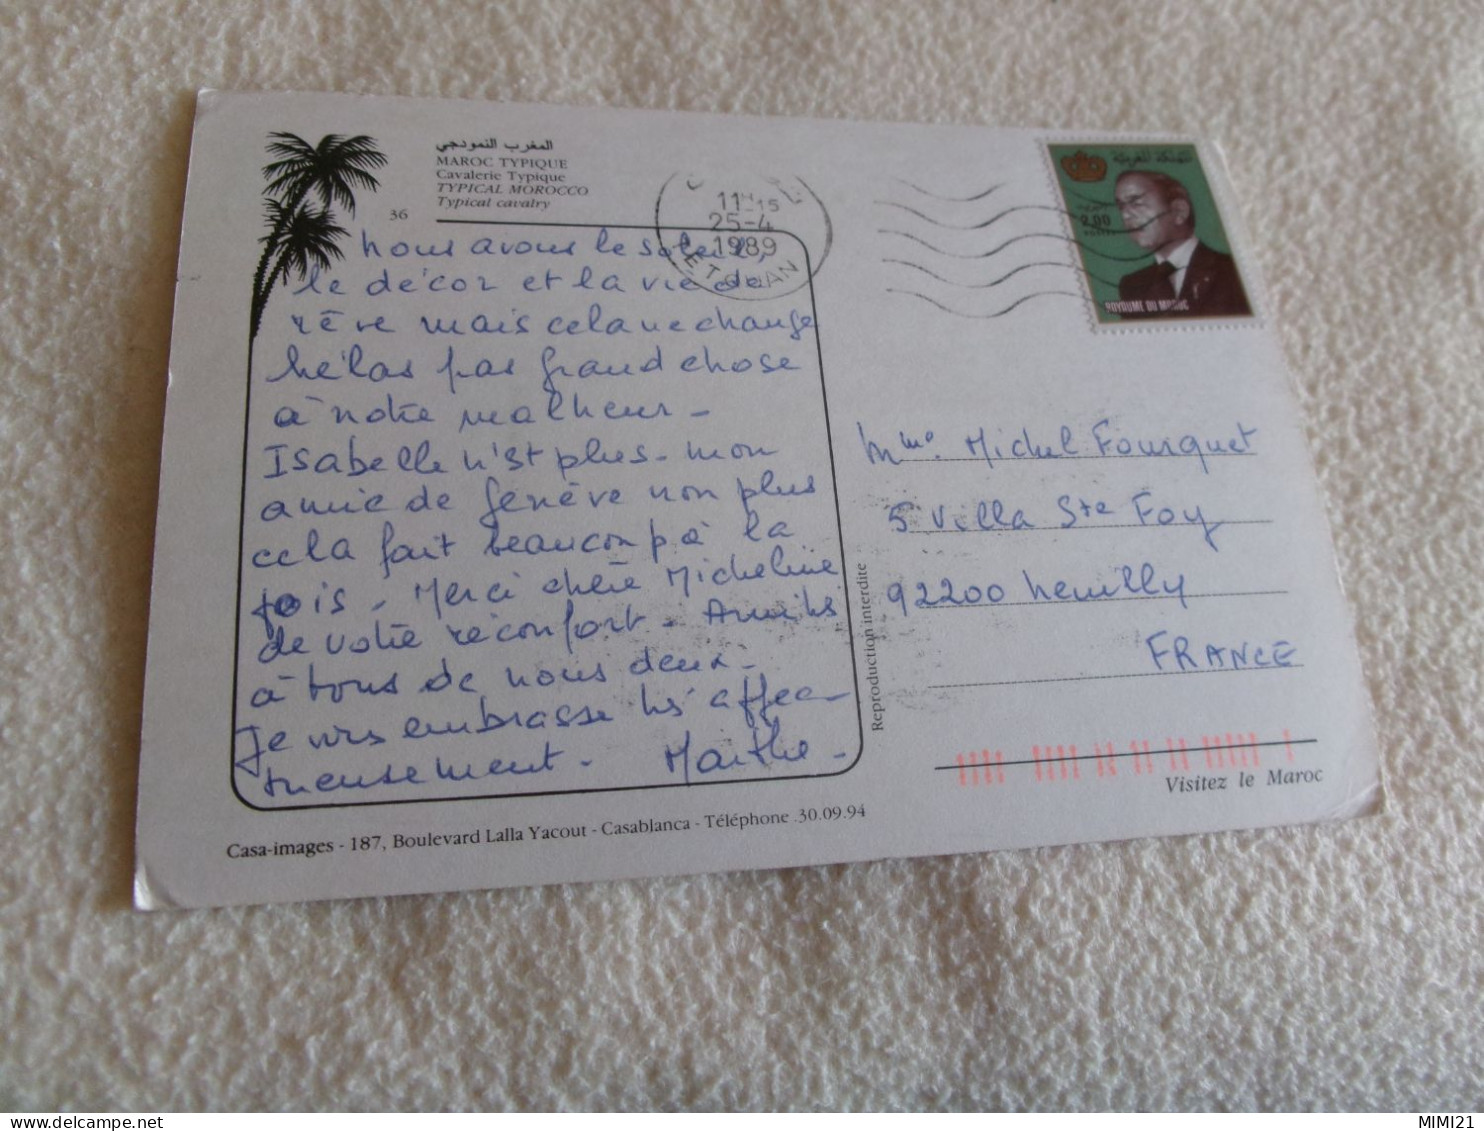 المغرب النمودجي
MAROC TYPIQUE
Cavalerie Typique
TYPICAL MOROCCO
Typical cavalry
36
11H15
25-4
1989
TETOUAN
المملكة المغربية
2,00
POSTES
ROYAUME DU MAROC
Nous avons le soleil,
le décor et la vie de
rêve mais cela ne change
hélas pas grand chose
à notre malheur -
Isabelle n'est plus - mon
amie de Genève non plus
cela fait beaucoup à la
fois - Merci chère Micheline
de votre réconfort - Amitiés
à tous de nous deux -
Je vous embrasse très affec-
tueusement - Marthe -
Mme. Michel Fourquet
5 Villa Ste Foy
92200 Neuilly
FRANCE
Reproduction interdite
Visitez le Maroc
Casa-images - 187, Boulevard Lalla Yacout - Casablanca - Téléphone .30.09.94
MIMI21